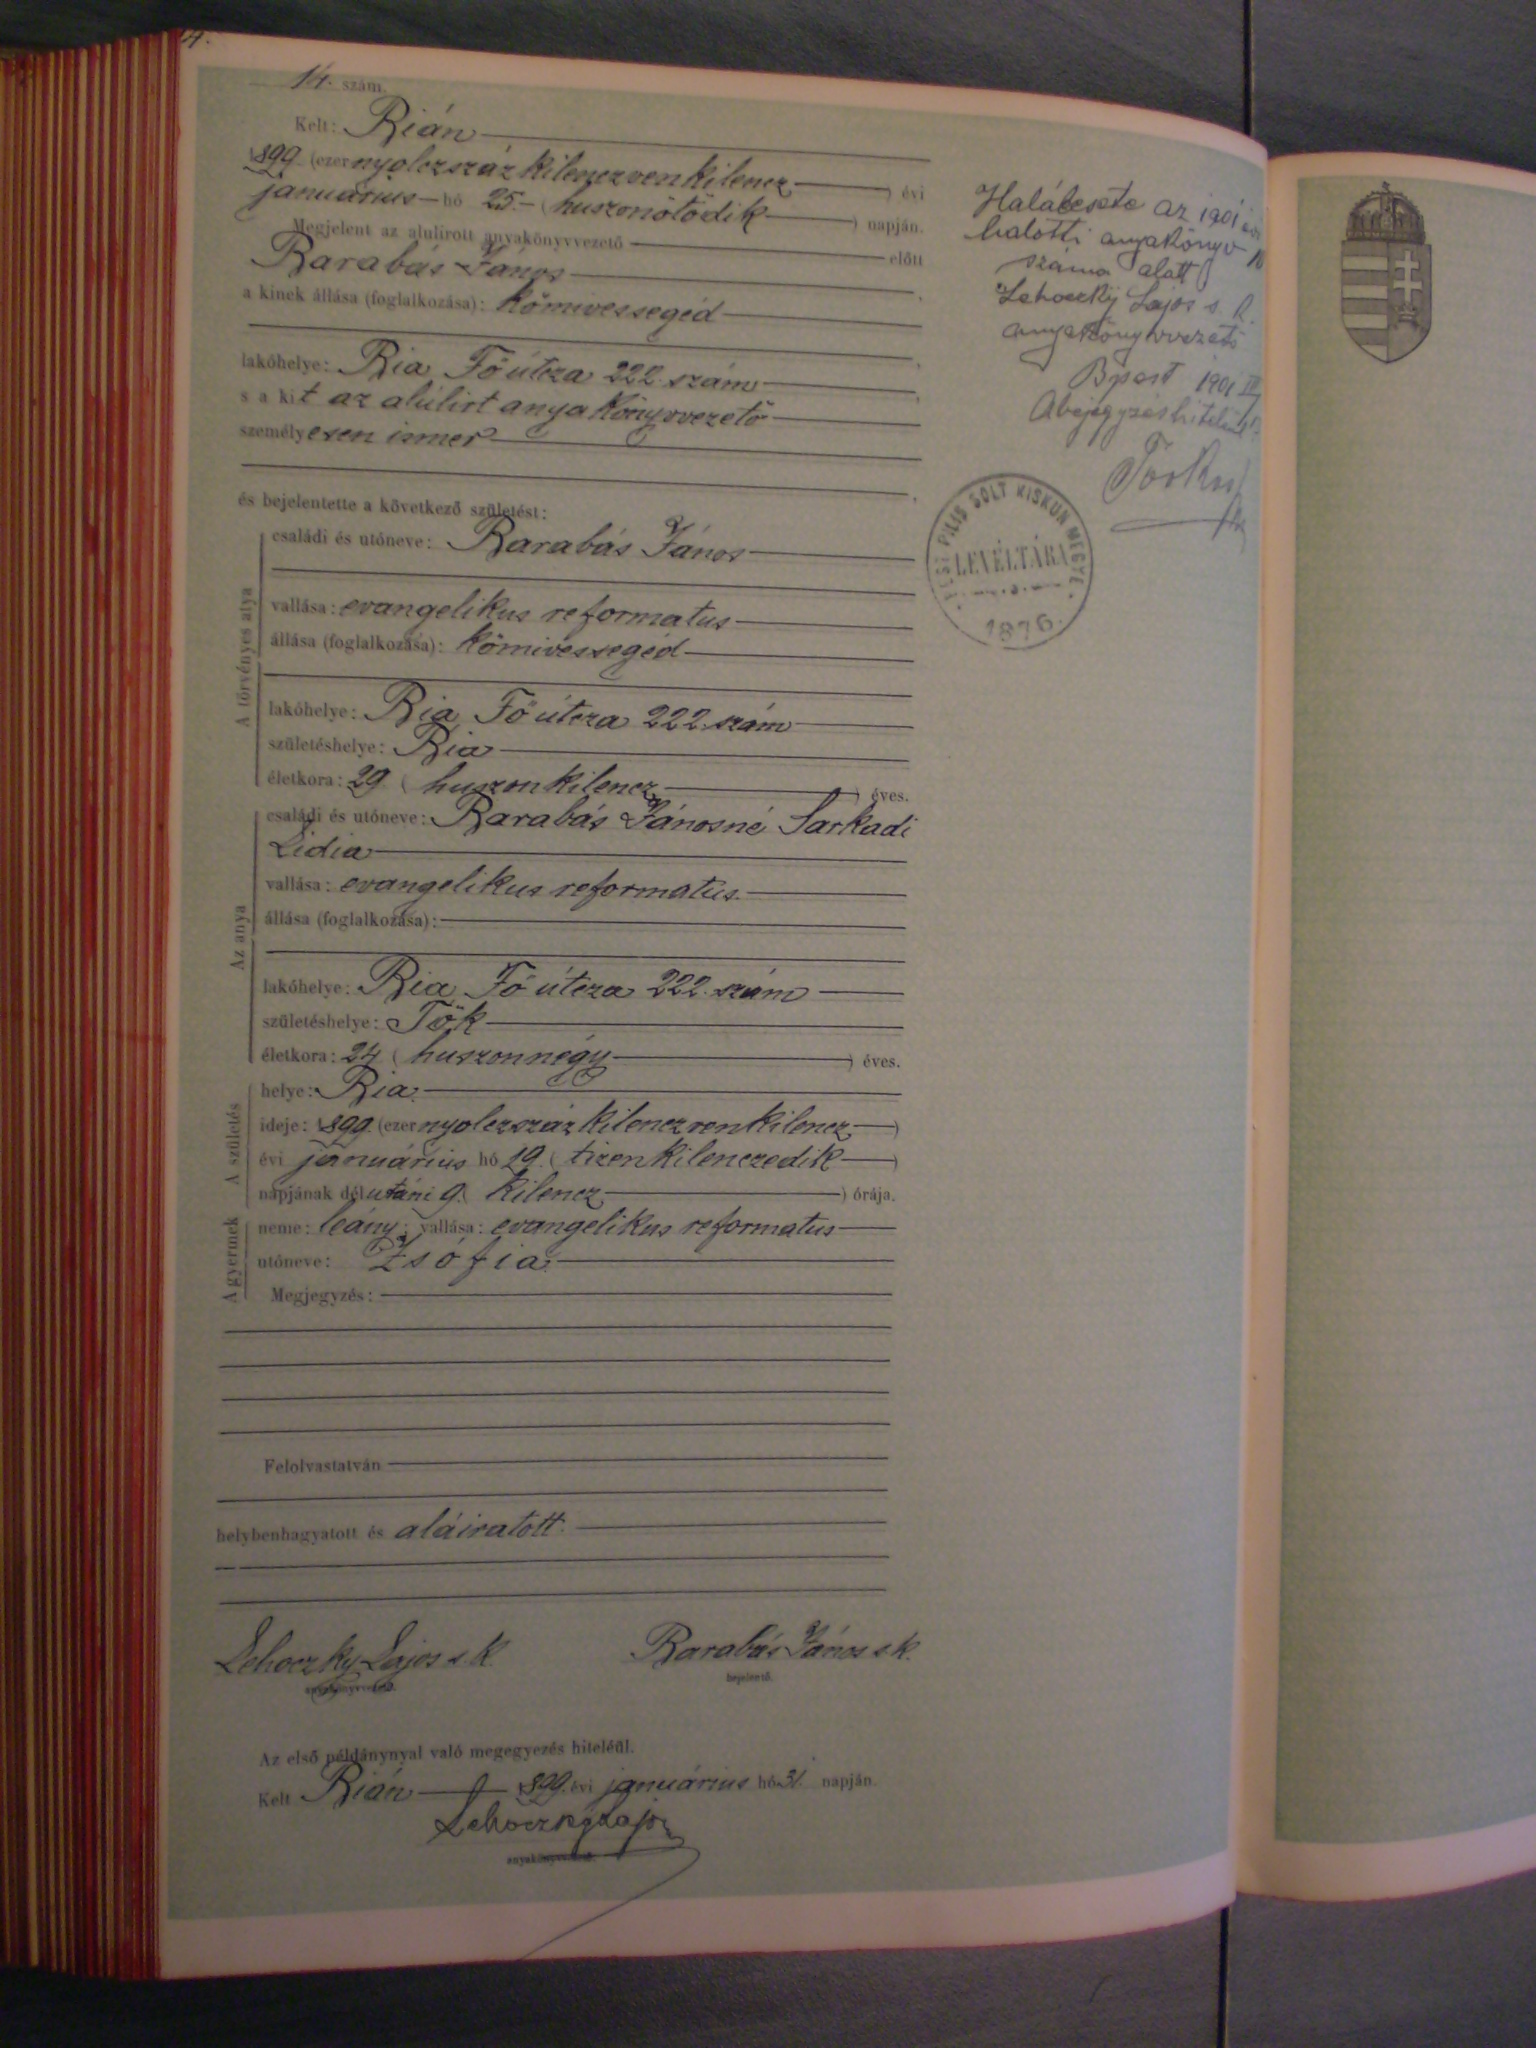 14. szám.
Kelt: Bián
1899. (ezernyolczszáz kilenczvenkilencz) évi
január​ius hó 25. (huszonötödik) napján.
Megjelent az alulirott anyakönyvvezető előtt
Barabás János,
a kinek állása (foglalkozása): kőmivessegéd
lakóhelye: Bia Fő útcza 222. szám,
s a kit az alúlirt anyakönyvvezető
személyesen ismer
és bejelentette a következő születést:
A törvényes atya
családi és utóneve: Barabás János
vallása: evangelikus reformatus
állása (foglalkozása): kőmivessegéd
lakóhelye: Bia, Fő útcza 222. szám
születéshelye: Bia
életkora: 29 (huszonkilencz) éves.
Az anya
családi és utóneve: Barabás Jánosné Sarkadi
Lidia
vallása: evangelikus reformatus.
állása (foglalkozása):
lakóhelye: Bia, Fő útcza 222. szám
születéshelye: Tök
életkora: 24 (huszonnégy) éves.
A születés
helye: Bia.
ideje: 1899. (ezernyolczszáz kilenczvenkilencz)
évi január​ius hó 19. (tizenkilenczedik)
napjának délutáni 9. (kilencz) órája.
A gyermek
neme: leány; vallása: evangelikus reformatus
utóneve: Zsófia.
Megjegyzés:
Felolvastatván
helybenhagyatott és aláiratott.
Lehoczky Lajos s. k.
anyakönyvvezető.
Barabás János s k.
bejelentő.
Az első példánynyal való megegyezés hiteléül.
Kelt Bián 1899. évi január​ius hó 31. napján.
Lehoczky Lajos
anyakönyvvezető.
Halálesete az 1901 évi
halotti anyakönyv 10
száma alatt
Lehoczky Lajos s. k.
anyakönyvvezető
Bpest 1901
A bejegyzés hiteléül
PEST PILIS SOLT KISKUN MEGYE
LEVÉLTÁRA
1876.